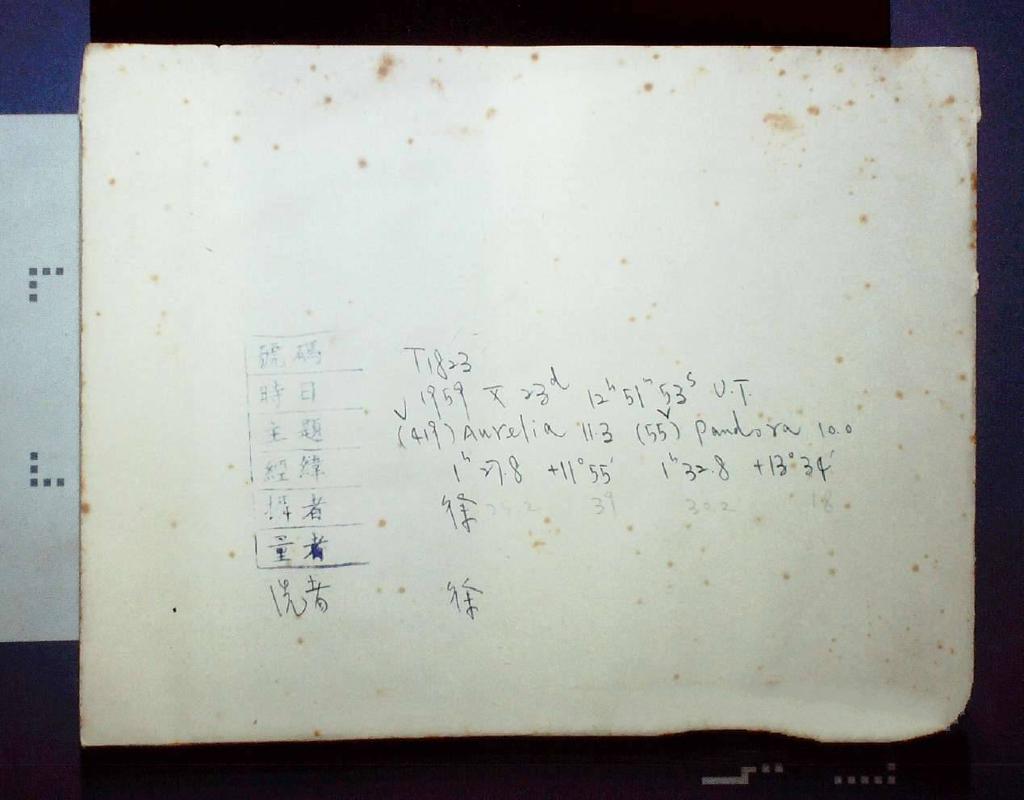 號碼 T1823
時日 1959 X 23d 12h 51m 53s U.T.
主題 (419) Aurelia 11.3 (55) Pandora 10.0
經緯 1h 27.8 +11° 55′ 1h 32.8 +13° 34′
者 徐 39 30.2 18
量者
洗者 徐